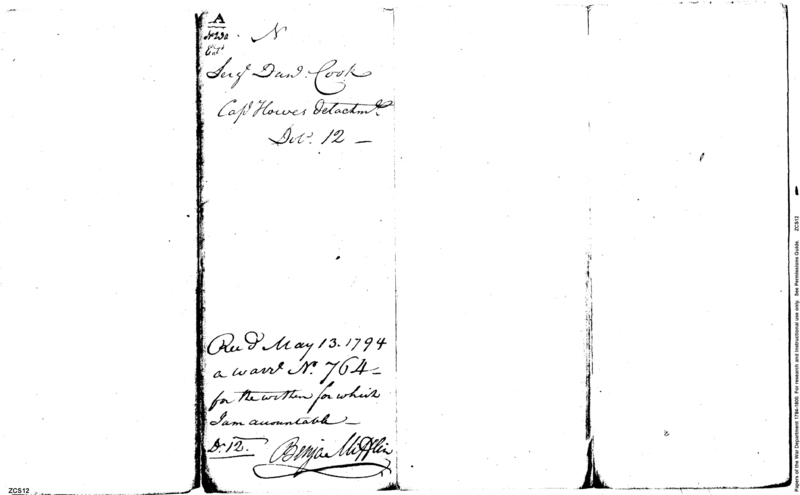 A
N
Serg.t Dan.l Cook
Cap.t Howes detachm.t
Dol.s 12 –
Rec.d May 13. 1794
a warr.t N.o 764 –
for the within for which
I am accountable –
D.s 12.
Benja Mifflin
ZCS12
Papers of the War Department 1784-1800. For research and instructional use only. See Permissions Guide. ZCS12